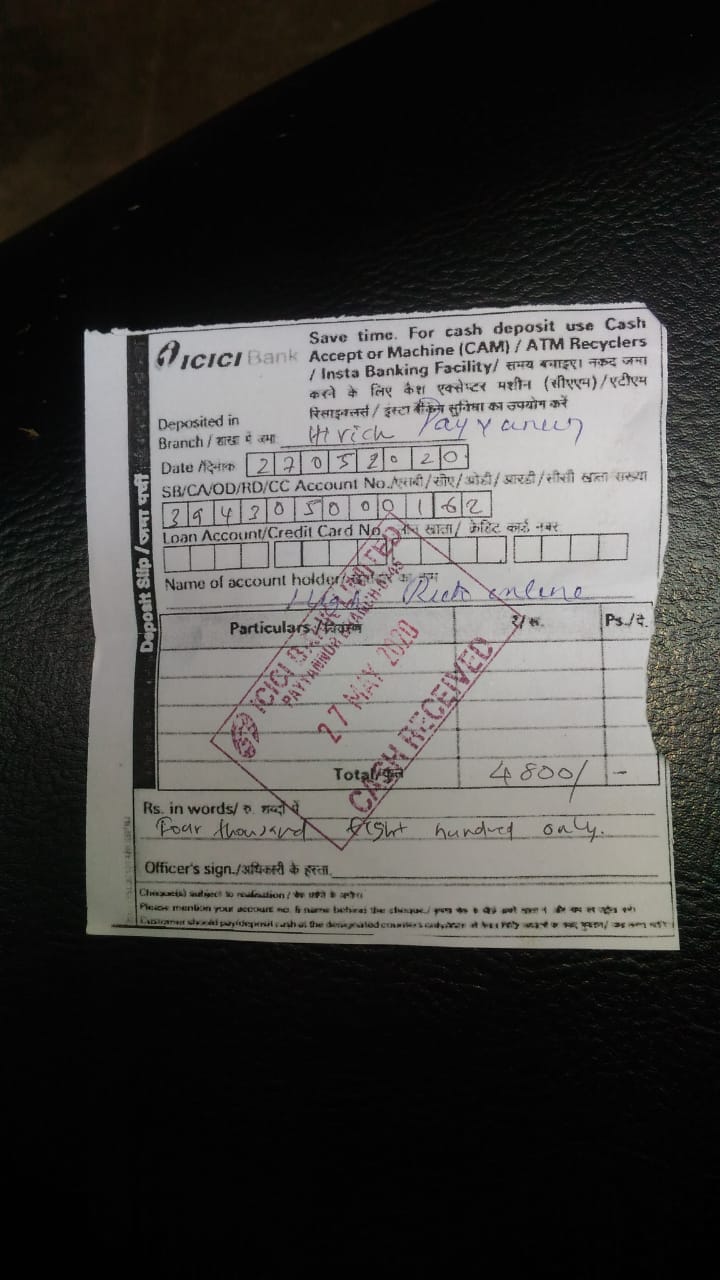 ICICI Bank
Save time. For cash deposit use Cash
Accept or Machine (CAM) / ATM Recyclers
/ Insta Banking Facility/ समय बचाइए। नकद जमा
करने के लिए कैश एक्सेप्टर मशीन (सीएएम)/एटीएम
रिसाइक्लर्स/ इंस्टा बैंकिंग सुविधा का उपयोग करें
Deposit Slip / जमा पर्ची
Deposited in
Branch / शाखा में जमा Hirich Payyanur
Date /दिनांक 27052020
SB/CA/OD/RD/CC Account No./एसबी/सीए/ओडी/आरडी/सीसी खाता संख्या
394305000162
Loan Account/Credit Card No. खाता/ क्रेडिट कार्ड नंबर
Name of account holder/ का नाम
online
Particulars /विवरण ₹/रू. Ps./पै.
Total/कुल 4800/ -
ICICI BANK LIMITED
PAYYANNUR BRANCH
27 MAY 2020
CASH RECEIVED
Rs. in words/ रु. शब्दों में
Four thousand Eight hundred only.
Officer's sign./अधिकारी के हस्ता.
Cheque(s) subject to realisation /
Please mention your account no. & name behind the cheque./
Customer should pay/deposit cash at the designated counters only.